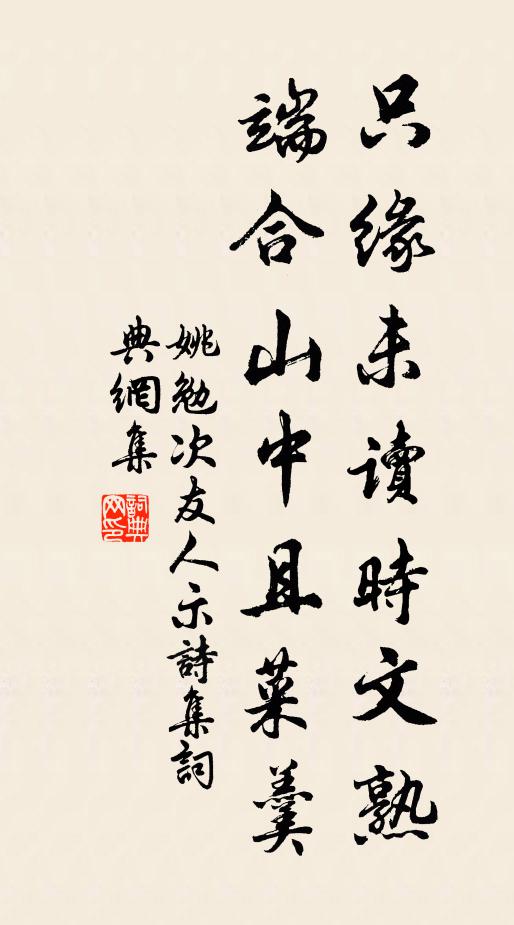 只緣未讀時文熟
端合山中且菜羹
姚勉次友人示詩集詞
典網集
詞典網印